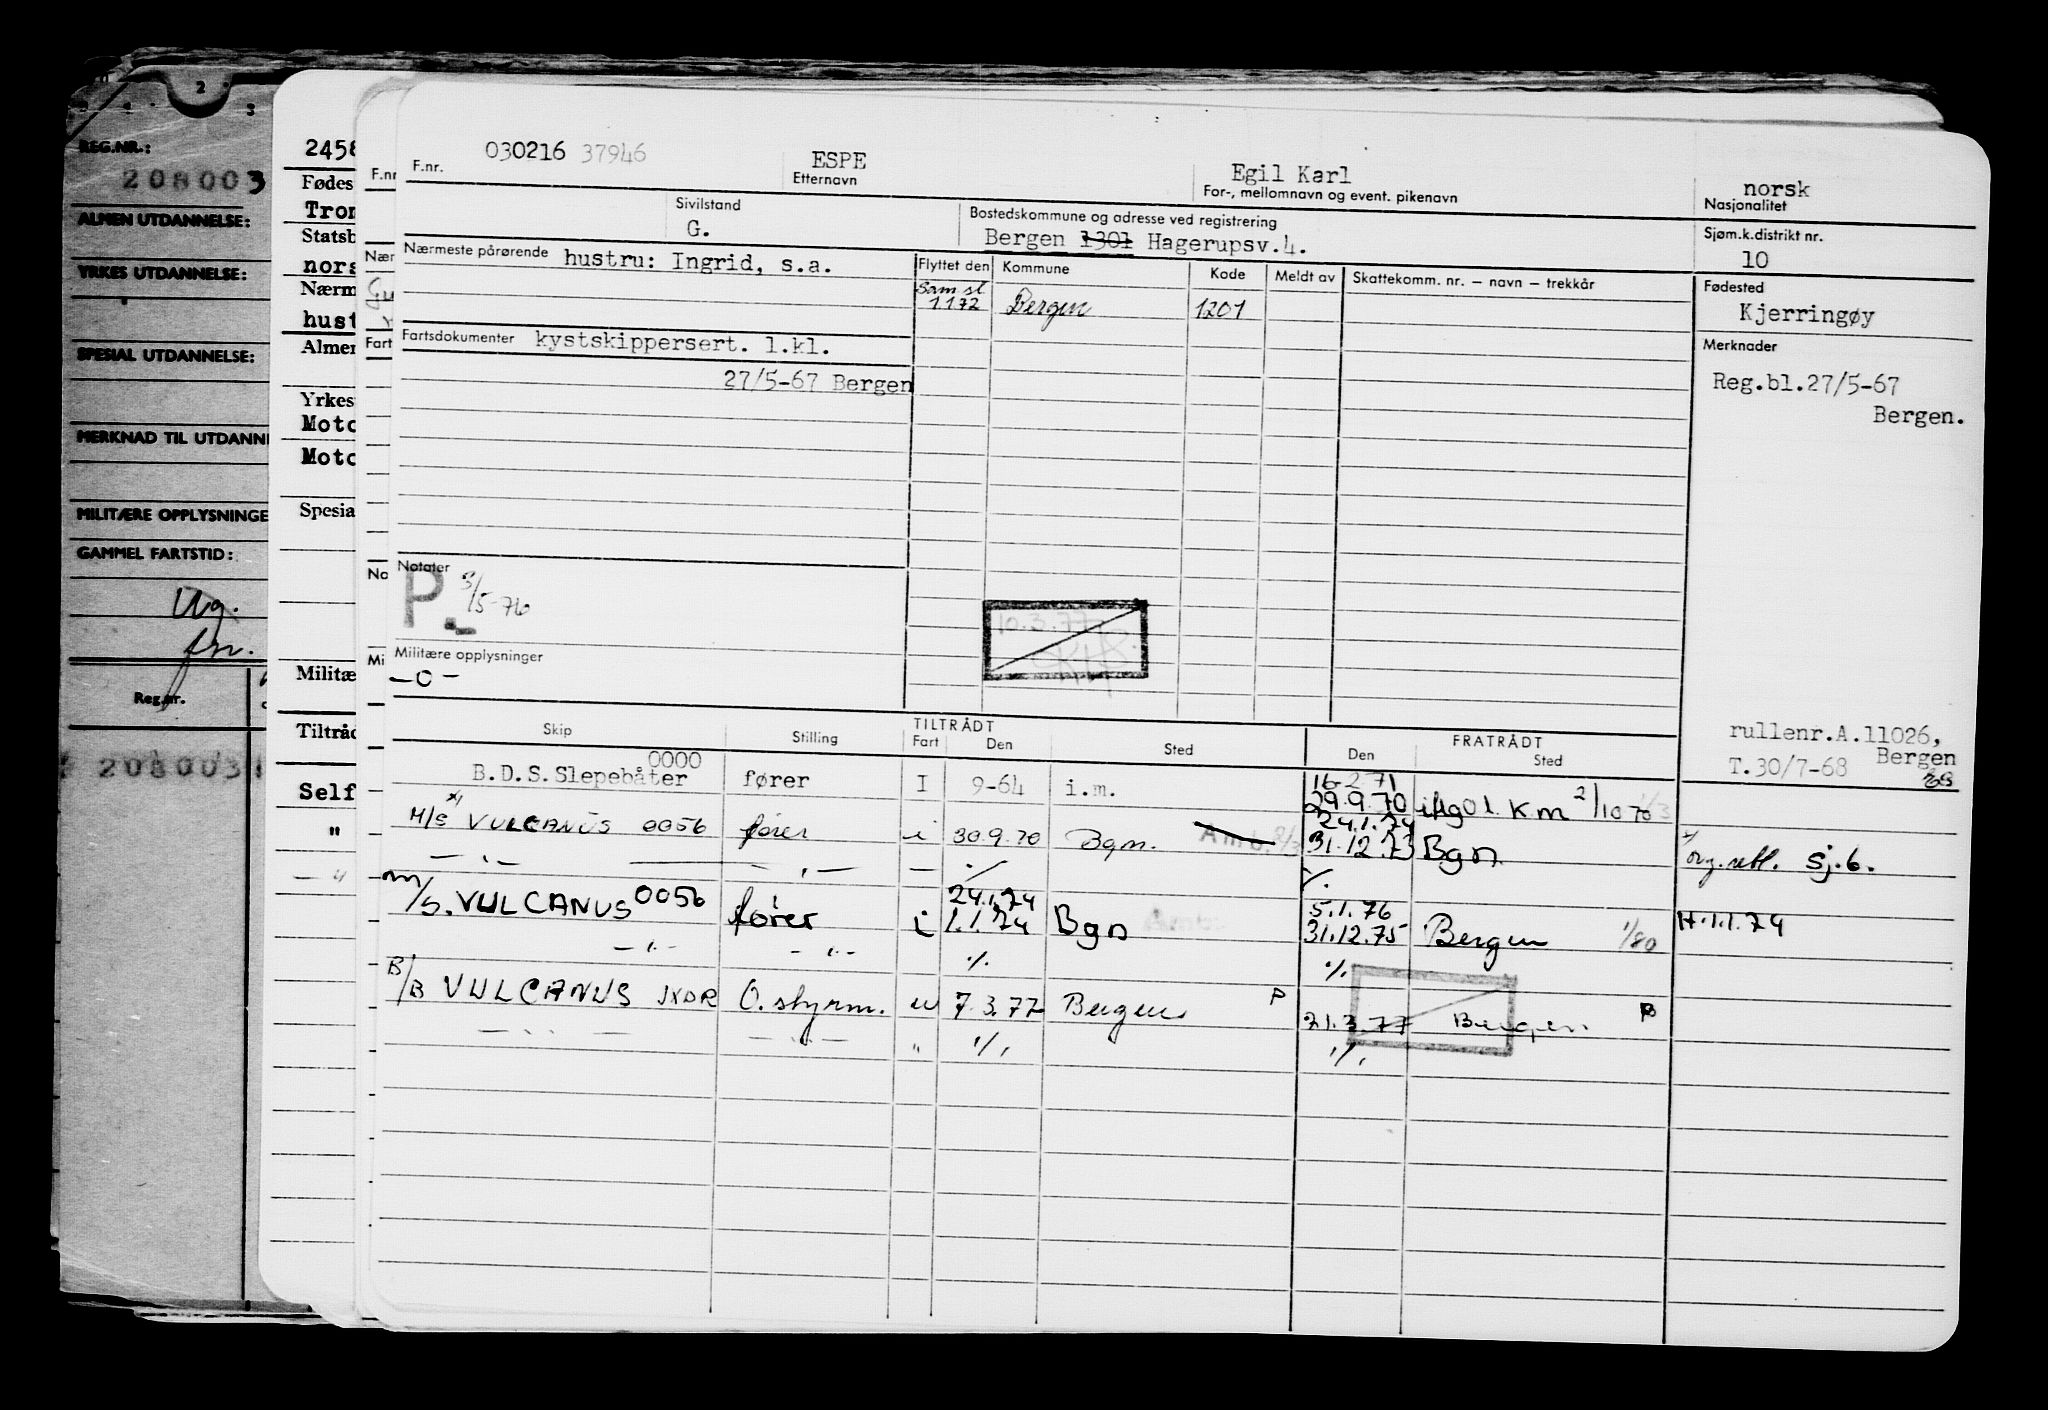 2
3
REG.NR.:
208003
ALMEN UTDANNELSE:
YRKES UTDANNELSE:
SPESIAL UTDANNELSE:
MERKNAD TIL UTDANN
MILITÆRE OPPLYSNINGE
GAMMEL FARTSTID:
Reg.nr.
208003
2458
Fødes
Tron
Statsb
nors
Nærm
hust
Almer
Yrkes
Moto
Moto
Spesia
Militæ
Tiltråd
Self
"
F.nr
Nær
Fart
No
Mi
F.nr. 030216 37946
ESPE
Etternavn
Egil Karl
For-, mellomnavn og event. pikenavn
norsk
Nasjonalitet
Sivilstand
G.
Bostedskommune og adresse ved registrering
Bergen 1301 Hagerupsv.4.
Sjøm.k.distrikt nr.
10
Nærmeste pårørende hustru: Ingrid, s.a.
Flyttet den Kommune Kode Meldt av Skattekomm. nr. – navn – trekkår
Sam.sl.
1.1.72 Bergen 1201
Fødested
Kjerringøy
Fartsdokumenter kystskippersert. 1.kl.
27/5-67 Bergen
Merknader
Reg.bl.27/5-67
Bergen.
Notater
P 3/5-76
10.3.77
Militære opplysninger
-0-
rullenr.A.11026,
Bergen
T.30/7-68
TILTRÅDT FRATRÅDT
Skip Stilling Fart Den Sted Den Sted
0000
B.D.S.Slepebåter fører I 9-64 i.m.
16-2 71
29.9.70 2/10 70
M/S VULCANUS 0056 fører i 30.9.70 Bgn.
24.1.74
31.12.73 Bgn.
Sj.6.
M/S. VULCANUS 0056 fører i
24.1.74
1.1.74 Bgn
5.1.76
31.12.75 Bergen 1/80
H.1.1.74
B/B VULCANUS JXDR O.styrm. u 7.3.77 Bergen P
21.3.77 Bergen P